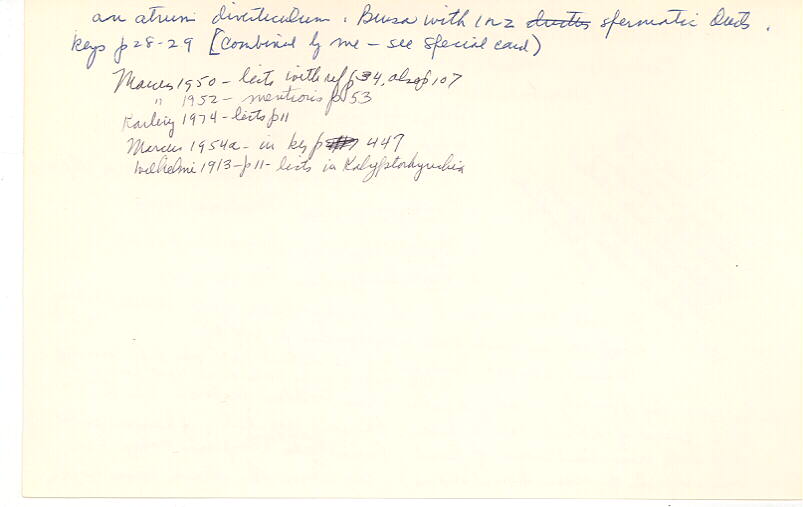 an atrium diverticulum. Bursa with 1 or 2 ductus spermatic Ducts.
keys p28-29 [combined by me - see special card)
Marcus 1950 - lists with ref p34, also p107
" 1952 - mentions p53
Karling 1974 - lists p11
Marcus 1954a - in key p 447
Wilhelmi 1913 - p11 - lists in Kalyptorhynchia